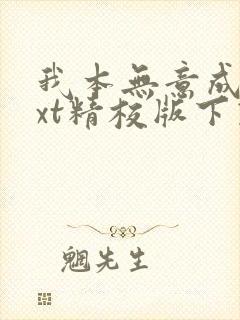 我本無意成
xt精校版下
魍先生